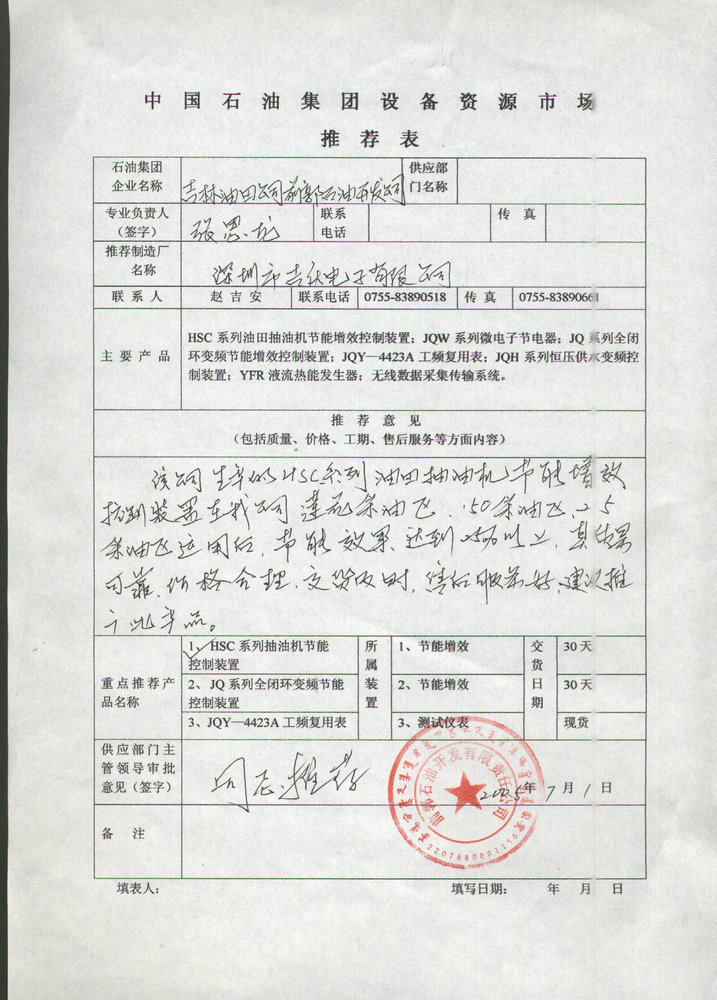 中国石油集团设备资源市场
推荐表
石油集团
企业名称
吉林油田公司前郭石油开发公司
供应部
门名称
专业负责人
（签字）
张恩龙
联系
电话
传 真
推荐制造厂
名称
深圳市吉跃电子有限公司
联 系 人
赵 吉 安
联系电话
0755-83890518
传 真
0755-83890661
主 要 产 品
HSC 系列油田抽油机节能增效控制装置；JQW 系列微电子节电器；JQ 系列全闭
环变频节能增效控制装置；JQY—4423A 工频复用表；JQH 系列恒压供水变频控
制装置；YFR 液流热能发生器；无线数据采集传输系统。
推 荐 意 见
（包括质量、价格、工期、售后服务等方面内容）
该公司生产的HSC系列油田抽油机节能增效
控制装置在我公司 采油 150采油 25
采油 运用后，节能效果达到25%以上，其结果
可靠，价格合理，交货及时，售后服务好，建议推
广此产品。
重点推荐产
品名称
1、HSC 系列抽油机节能
控制装置
2、JQ 系列全闭环变频节能
控制装置
3、JQY—4423A 工频复用表
所
属
装
置
1、节能增效
2、节能增效
3、测试仪表
交
货
日
期
30 天
30 天
现货
供应部门主
管领导审批
意见（签字）
同意推荐
2005年 7 月 1 日
前郭石油开发有限责任公司
2207880001150
备 注
填表人：
填写日期： 年 月 日